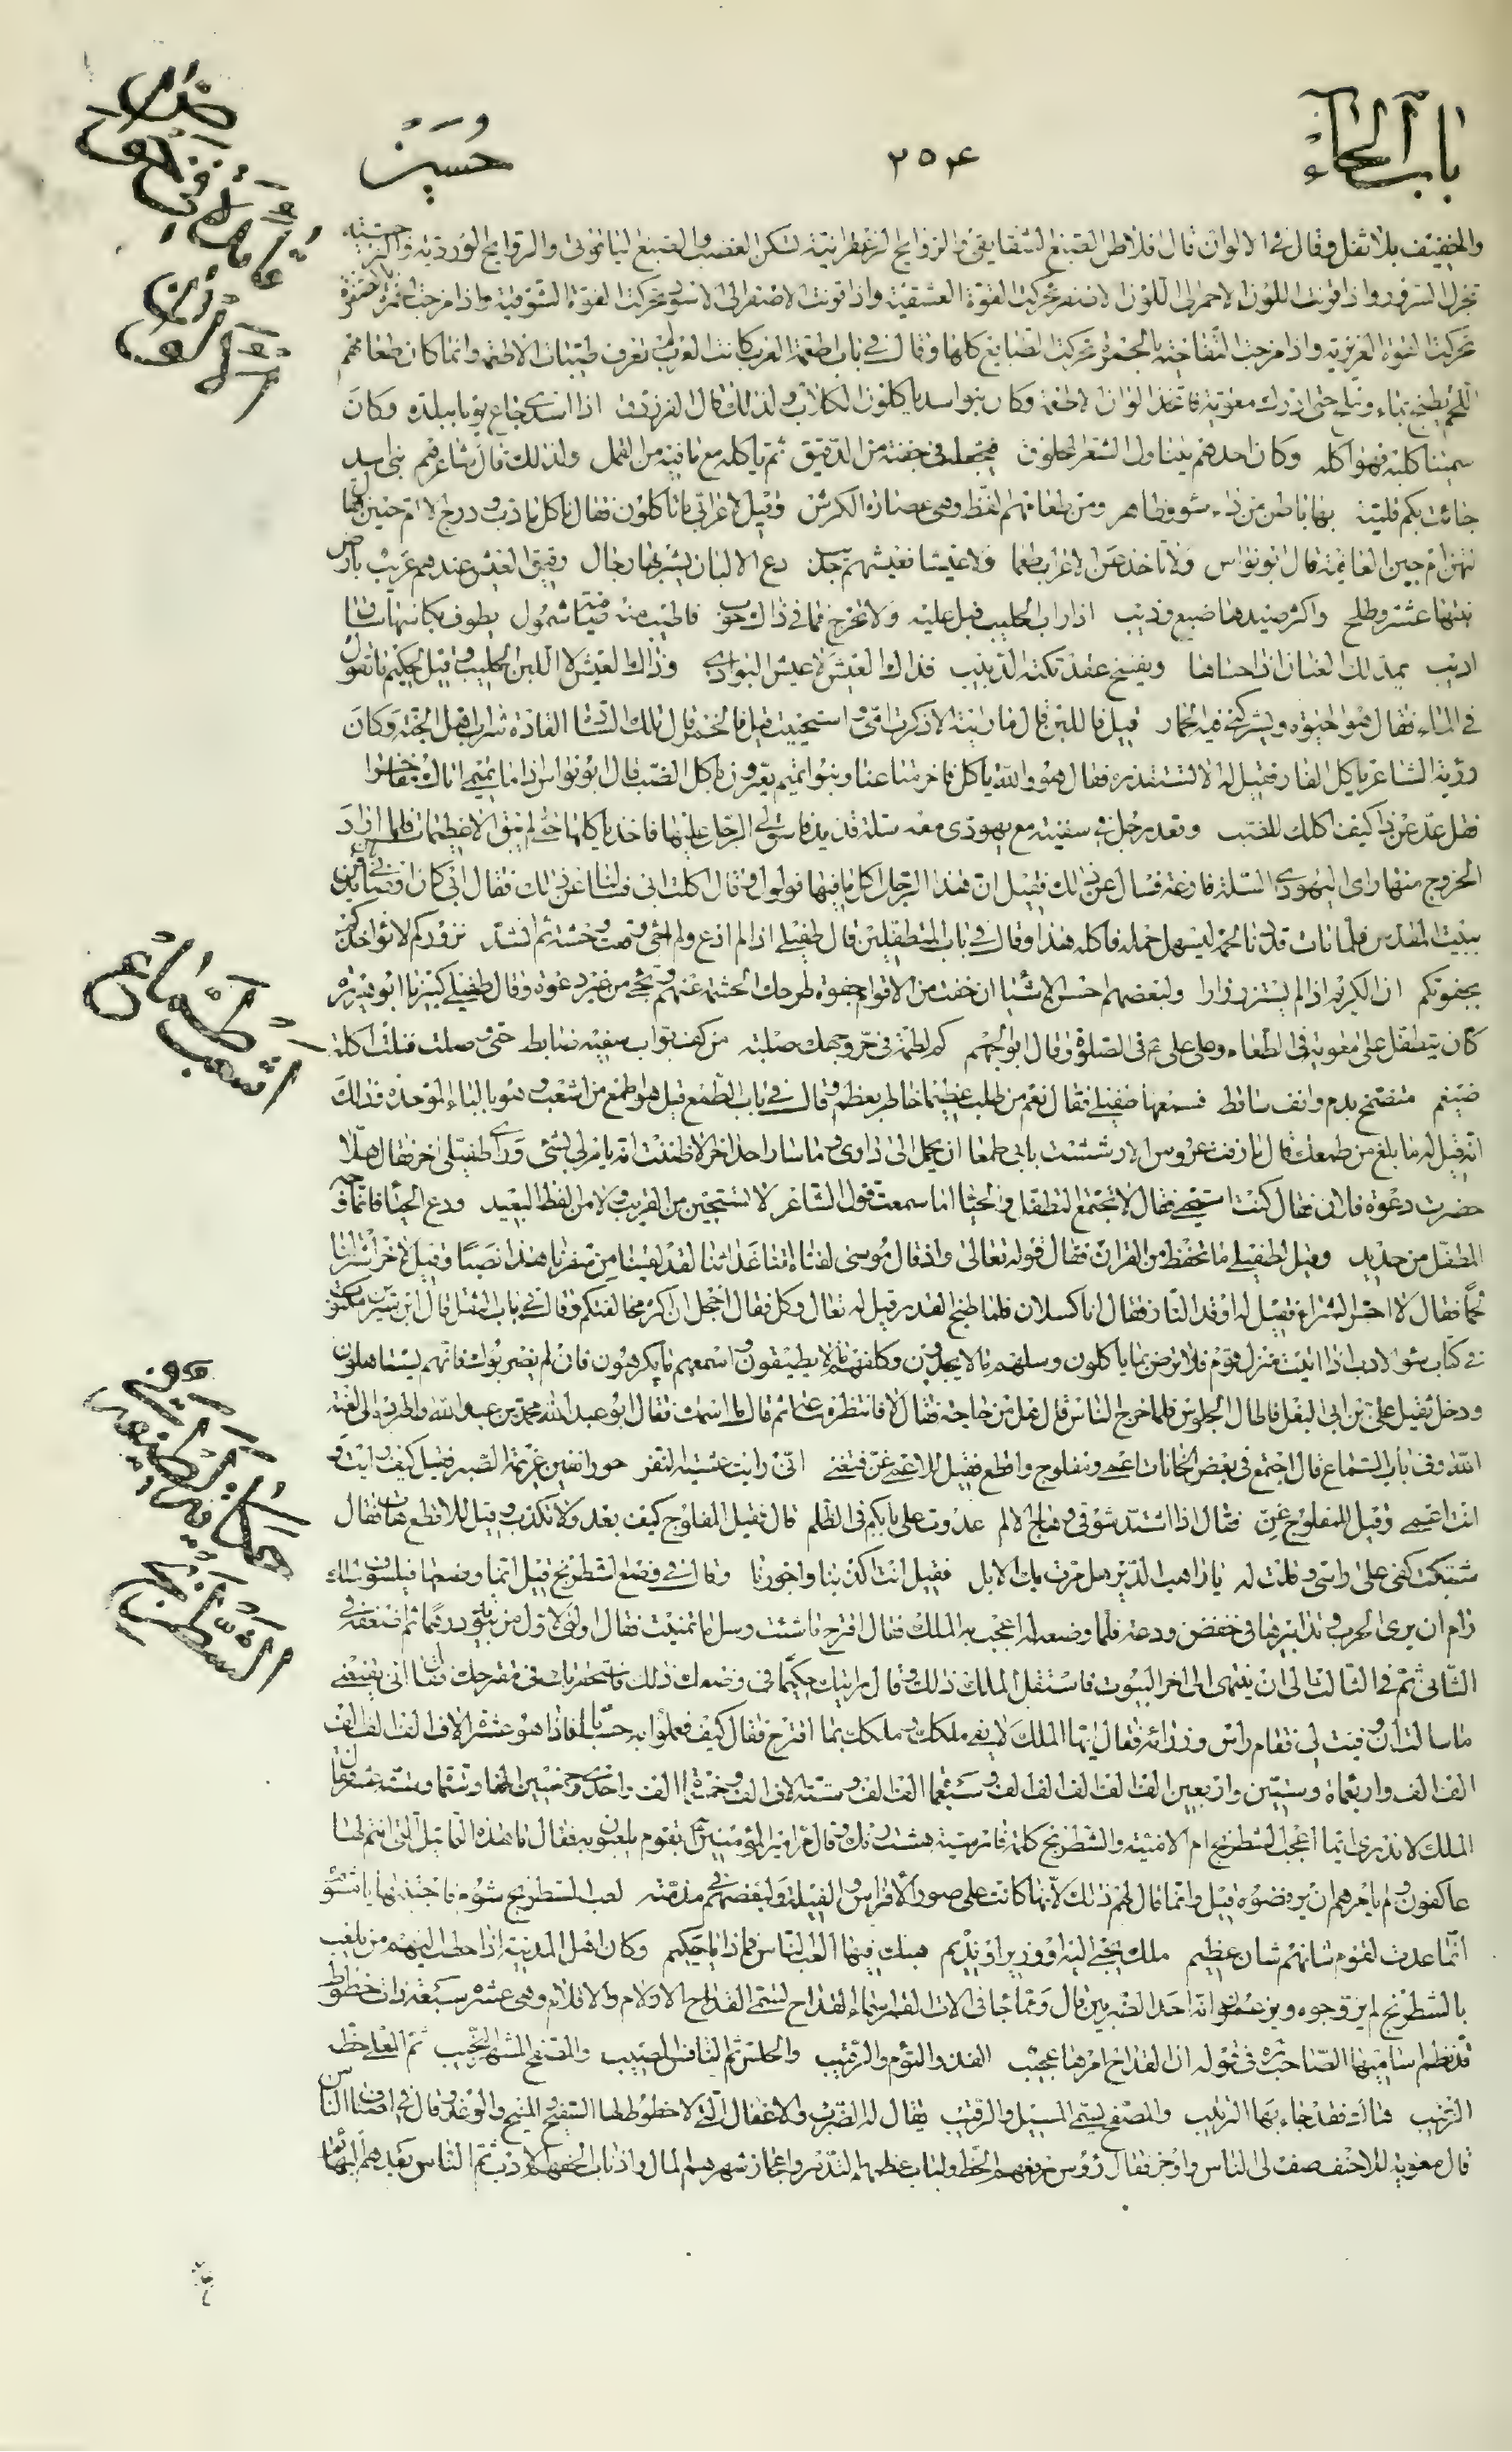 باب الحاء
٢٥٤
حسين
والخفيف بلا ثقل وقال في الالوان قال فلاطن الصبغ الشقايقي والروايح الزعفرانية تسكن الغضب والصبغ الياقوتي والروايح الوردية
تحرك السرور واذا قرنت اللون الاحمر الى اللون الاصفر تحركت القوة العشقية واذا قرنت الاصفر الى الاسود تحركت القوة الشوقية واذا مزجت
تحركت القوة الغريزية واذا مزجت التفاحية بالخمرية تحركت الطبايع كلها وقال في باب اطعمة العرب كانت العرب لا تعرف طيبات الاطعمة وانما كان طعامهم
اللحم يطبخ بماء وملح حتى ادرك معوية فاتخذ الوان الاطعمة وكان بنو اسد ياكلون الكلاب ولذلك قال الفرزدق اذا اسدي جاع يوما ببلدة وكان
سمينا كلبه فهو اكله وكان احدهم يتناول الشعر المحلوق فيجعله في جفنة من الدقيق ثم ياكله مع ما فيه من القمل ولذلك قال شاعرهم بني اسد
جائت بكم قملية بها باطن من داء سوء وظاهر ومن طعامهم الفظ وهي عصارة الكرش وقيل لاعرابي ما تاكلون فقال ناكل ما دب ودرج الا ام حبين فقال
لتهن ام حبين العافية قال ابو نواس ولا تاخذ عن الاعراب طعما ولا عيشا فعيشهم جديب دع الالبان يشربها رجال رقيق العيش عندهم غريب بارض
نبتها عشر وطلح واكثر صيدها ضبع وذيب اذا راب الحليب فبل عليه ولا تحرج فما في ذاك حوب فاطيب منه صافية شمول يطوف بكاسها ساق
اديب يمد لك العنان اذا حساها ويفتح عقد تكته الدبيب فذاك العيش لا عيش البوادي وذاك العيش لا اللبن الحليب وقيل لحكيم ما تقول
في الماء فقال هو الحيوة ويشركني فيه الحمار قيل فاللبن قال ما رايته الا ذكرت امي واستحييت قيل فالخمر قال تلك السارة البارة شراب اهل الجنة وكان
رؤبة الشاعر ياكل الفار فقيل له الا تستقذره فقال هو والله ياكل فاخر متاعنا وبنو تميم يعيرون باكل الضب قال ابو نواس اذا ما تميمي اتاك مفاخرا
فقل عد عن ذا كيف اكلك للضب وقعد رجل في سفينة مع يهودي معه سلة قديد فاستولى الرجل عليها فاخذ ياكلها حتى لم يبق الا عظمات فلما اراد
الخروج منها راى اليهودي السلة فارغة فسال عن ذلك فقيل ان هذا الرجل اكل ما فيها فولول وقال اكلت ابي فسالنا عن ذلك فقال ابي كان وصى ان يدفن
ببيت المقدس فلما مات قددنا لحمه ليسهل حمله فاكله هذا وقال في باب المتطفلين قال طفيلي اذا لم ادع ولم اجئ وقعت وحشة ثم انشد نزوركم لا نؤاخذكم
بجفوتكم ان الكريم اذا لم يستزر زارا ولبعضهم حسن الاشيا ان خفت من الاقوام جفوة طرحك الحشمة عنهم وتجي من غير دعوة وقال طفيلي كبير ما ابو هريرة
كان يتطفل على معوية في الطعام وعلى علي ع في الصلوة وقال ابو الجهم كم لطمة في حر وجهك صلبة من كف بواب سفيه ضابط حتى وصلت فنلت اكلة
ضيغم متضمخ بدم وانف ساقط فسمعها طفيلي فقال نعم من طلب عظيما خاطر بعظيم وقال في باب الطمع قيل هو اطمع من اشعب وهو بالباء الموحدة وذلك
انه قيل له ما بلغ من طمعك قال ما زفت عروس الا رششت بابي طمعا ان يحمل الى داري وما سار احد اخر الا ظننت انه يامر لي بشئ وراى طفيلي اخر فقال هلا
حضرت دعوة فلان فقال كنت استحيي فقال لا تجتمع التطفل والحيا اما سمعت قول الشاعر لا تستحين من القريب ولا من الفظ البعيد ودع الحيا فانما وجه
المطفل من حديد وقيل لطفيلي ما تحفظ من القران فقال قوله تعالى واذ قال موسى لفتاه اتنا غدائنا لقد لقينا من سفرنا هذا نصبا وقيل لاخر اشتر لنا
لحما فقال لا احسن الشراء فقيل له اوقد النار فقال انا كسلان فلما طبخ القدر قيل له تعال وكل فقال اخجل ان اكثر مخالفتكم وقال في باب الثقل قال ابن
في كتاب سوء الادب اذا اتيت منزل قوم فلا ترض بما ياكلون وسلهم ما لا يجدون وكلفهم ما لا يطيقون واسمعهم ما يكرهون فان لم يضربوك فانهم يستاهلون
ودخل ثقيل على ابن ابي البغل فاطال الجلوس فلما خرج الناس قال هل من حاجة فقال لا فانتظره ساعة ثم قال ما اسمك فقال ابو عبد الله محمد بن عبد الله
الله وفي باب السماع قال اجتمع في بعض الخانات اعمى ومفلوج واقطع فقيل للاعمى غن فغنى اني رايت عشية النفر حورا نفين عزيمة الصبر فقيل كيف رايت و
انت اعمى وقيل للمفلوج غن فقال اذا اشتد شوقي وهاج الالم عدوت على بابكم في الظلم قال فقيل المفلوج كيف يعدو ولا تكذب وقيل للاقطع هات فقال
شبكت كفي على راسي وقلت له يا راهب الدير هل مرت بك الابل فقيل انت اكذبنا واجورنا وقال في وضع الشطرنج قيل انما وضعها فيلسوف لملك
رام ان يرى الحرب وتدابيرها في خفض ودعة فلما وضعه له اعجب به الملك فقال اقترح ما شئت وسل ما تمنيت فقال اول بيت درهما ثم اضعفه في
الثاني ثم في الثالث الى ان ينتهي الى اخر البيوت فاستقل الملك ذلك وقال رايتك حكيما في وضعك ذلك فاستحقرتك في مقترحك فقال اني يقنعني
ما سالت ان وفيت لي فقام راس وزرائه فقال ايها الملك لا يفي ملكك وملكك بما اقترح فقال كيف فعملوا به حسابا فاذا هو
الملك لا ندري ايما اعجب الشطرنج ام الامنية والشطرنج كلمة فارسية هشت رنك وقال مر امير المؤمنين ع بقوم يلعبون به فقال ما هذه التماثيل التي انتم لها
عاكفون ولم يامرهم ان يرفضوه قيل وانما قال لهم ذلك لانها كانت على صور الافراس والفيلة ولبعضهم في مذمته لعب الشطرنج شوم فاجتنبها يا مشوم
انما عدت لقوم شانهم شان عظيم ملك يجبى اليه او وزير او نديم هبك فيها العب الناس فماذا يا حكيم وكان اهل المدينة اذا خطب اليهم من يلعب
بالشطرنج لم يزوجوه ويزعمون انه احد الضرتين قال ومما جا في الات القمار اسماء القداح لتسمى القداح الازلام والاقلام وهي عشرة سبعة ذات خطوط
قد نظم اساميها الصاحب ره في قوله ان القداح امرها عجيب الفذ والتوءم والرقيب والحلس ثم النافس المصيب والمصفح المشتهر النجيب ثم المعلى حظه
الرغيب هاك فقد جاء بها الترتيب والمصفح يسمى المسبل والرقيب يقال له الضريب والاغفال التي لا خطوط لها السفيح والمنيح والوغد وقال في اصناف الناس
قال معوية للاحنف صف لي الناس واوجز فقال رؤس رفعهم الحظ ولباب عظمهم التدبير واعجاز شهرهم المال واذناب الحقهم الادب ثم الناس بعدهم البهائم
اشعب طماع
حكاية لطيفة في
الشطرنج